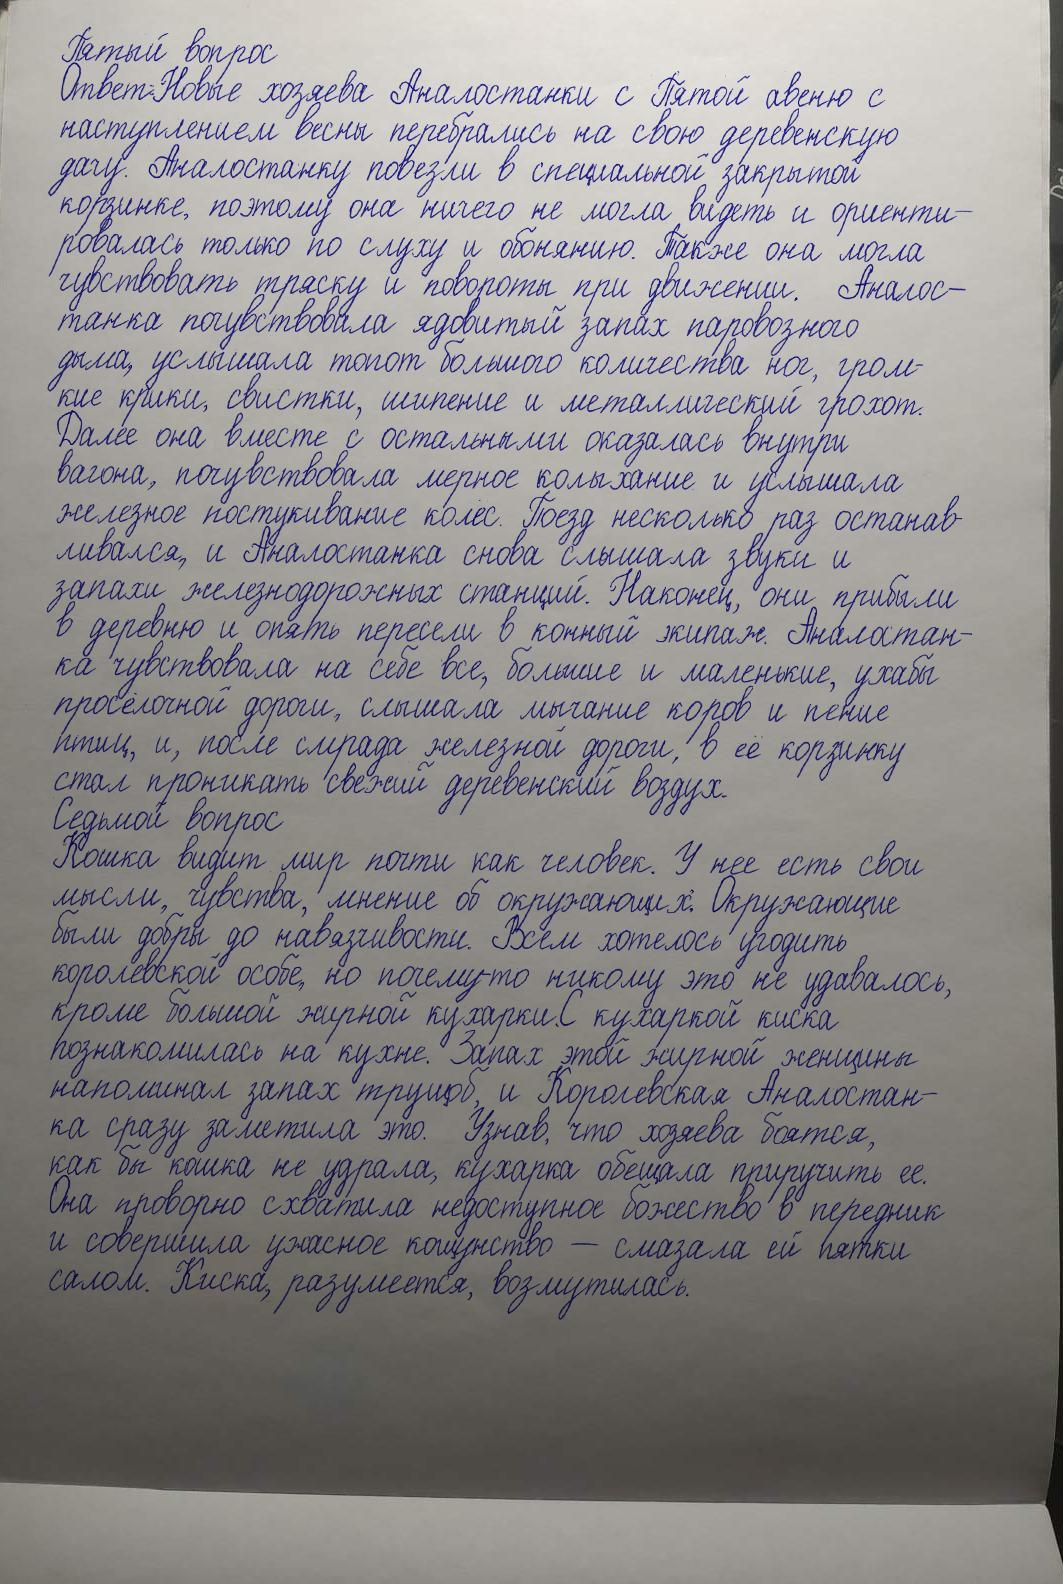 Пятый вопрос
Ответ:Новые хозяева Аналостанки с Пятой авеню с
наступлением весны перебрались на свою деревенскую
дачу. Аналостанку повезли в специальной закрытой
корзинке, поэтому она ничего не могла видеть и ориенти-
ровалась только по слуху и обонянию. Также она могла
чувствовать тряску и повороты при движении. Аналос-
танка почувствовала ядовитый запах паровозного
дыма, услышала топот большого количества ног, гром-
кие крики, свистки, шипение и металлический грохот.
Далее она вместе с остальными оказалась внутри
вагона, почувствовала мерное колыхание и услышала
железное постукивание колёс. Поезд несколько раз останав-
ливался, и Аналостанка снова слышала звуки и
запахи железнодорожных станций. Наконец, они прибыли
в деревню и опять пересели в конный экипаж. Аналостан-
ка чувствовала на себе все, большие и маленькие, ухабы
просёлочной дороги, слышала мычание коров и пение
птиц, и, после смрада железной дороги, в её корзинку
стал проникать свежий деревенский воздух.
Седьмой вопрос
Кошка видит мир почти как человек. У нее есть свои
мысли, чувства, мнение об окружающих. Окружающие
были добры до навязчивости. Всем хотелось угодить
королевской особе, но почему-то никому это не удавалось,
кроме большой жирной кухарки.С кухаркой киска
познакомилась на кухне. Запах этой жирной женщины
напоминал запах трущоб, и Королевская Аналостан-
ка сразу заметила это. Узнав, что хозяева боятся,
как бы кошка не удрала, кухарка обещала приручить ее.
Она проворно схватила недоступное божество в передник
и совершила ужасное кощунство — смазала ей пятки
салом. Киска, разумеется, возмутилась.